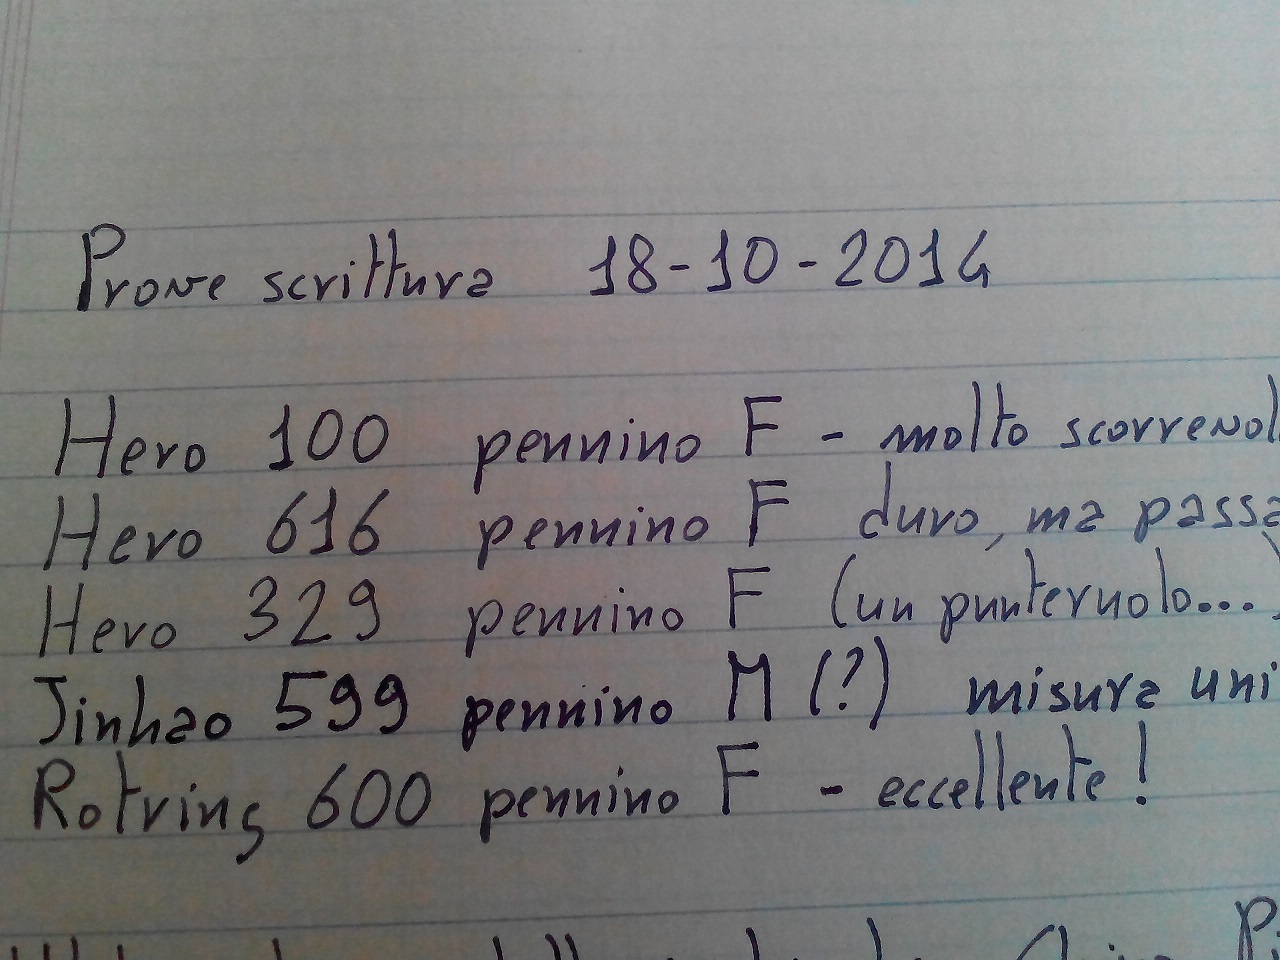 Prove scrittura 18-10-2014
Hero 100 pennino F - molto scorrevol
Hero 616 pennino F duro, ma passa
Hero 329 pennino F (un punteruolo...)
Jinhao 599 pennino M (?) misura uni
Rotring 600 pennino F - eccellente!